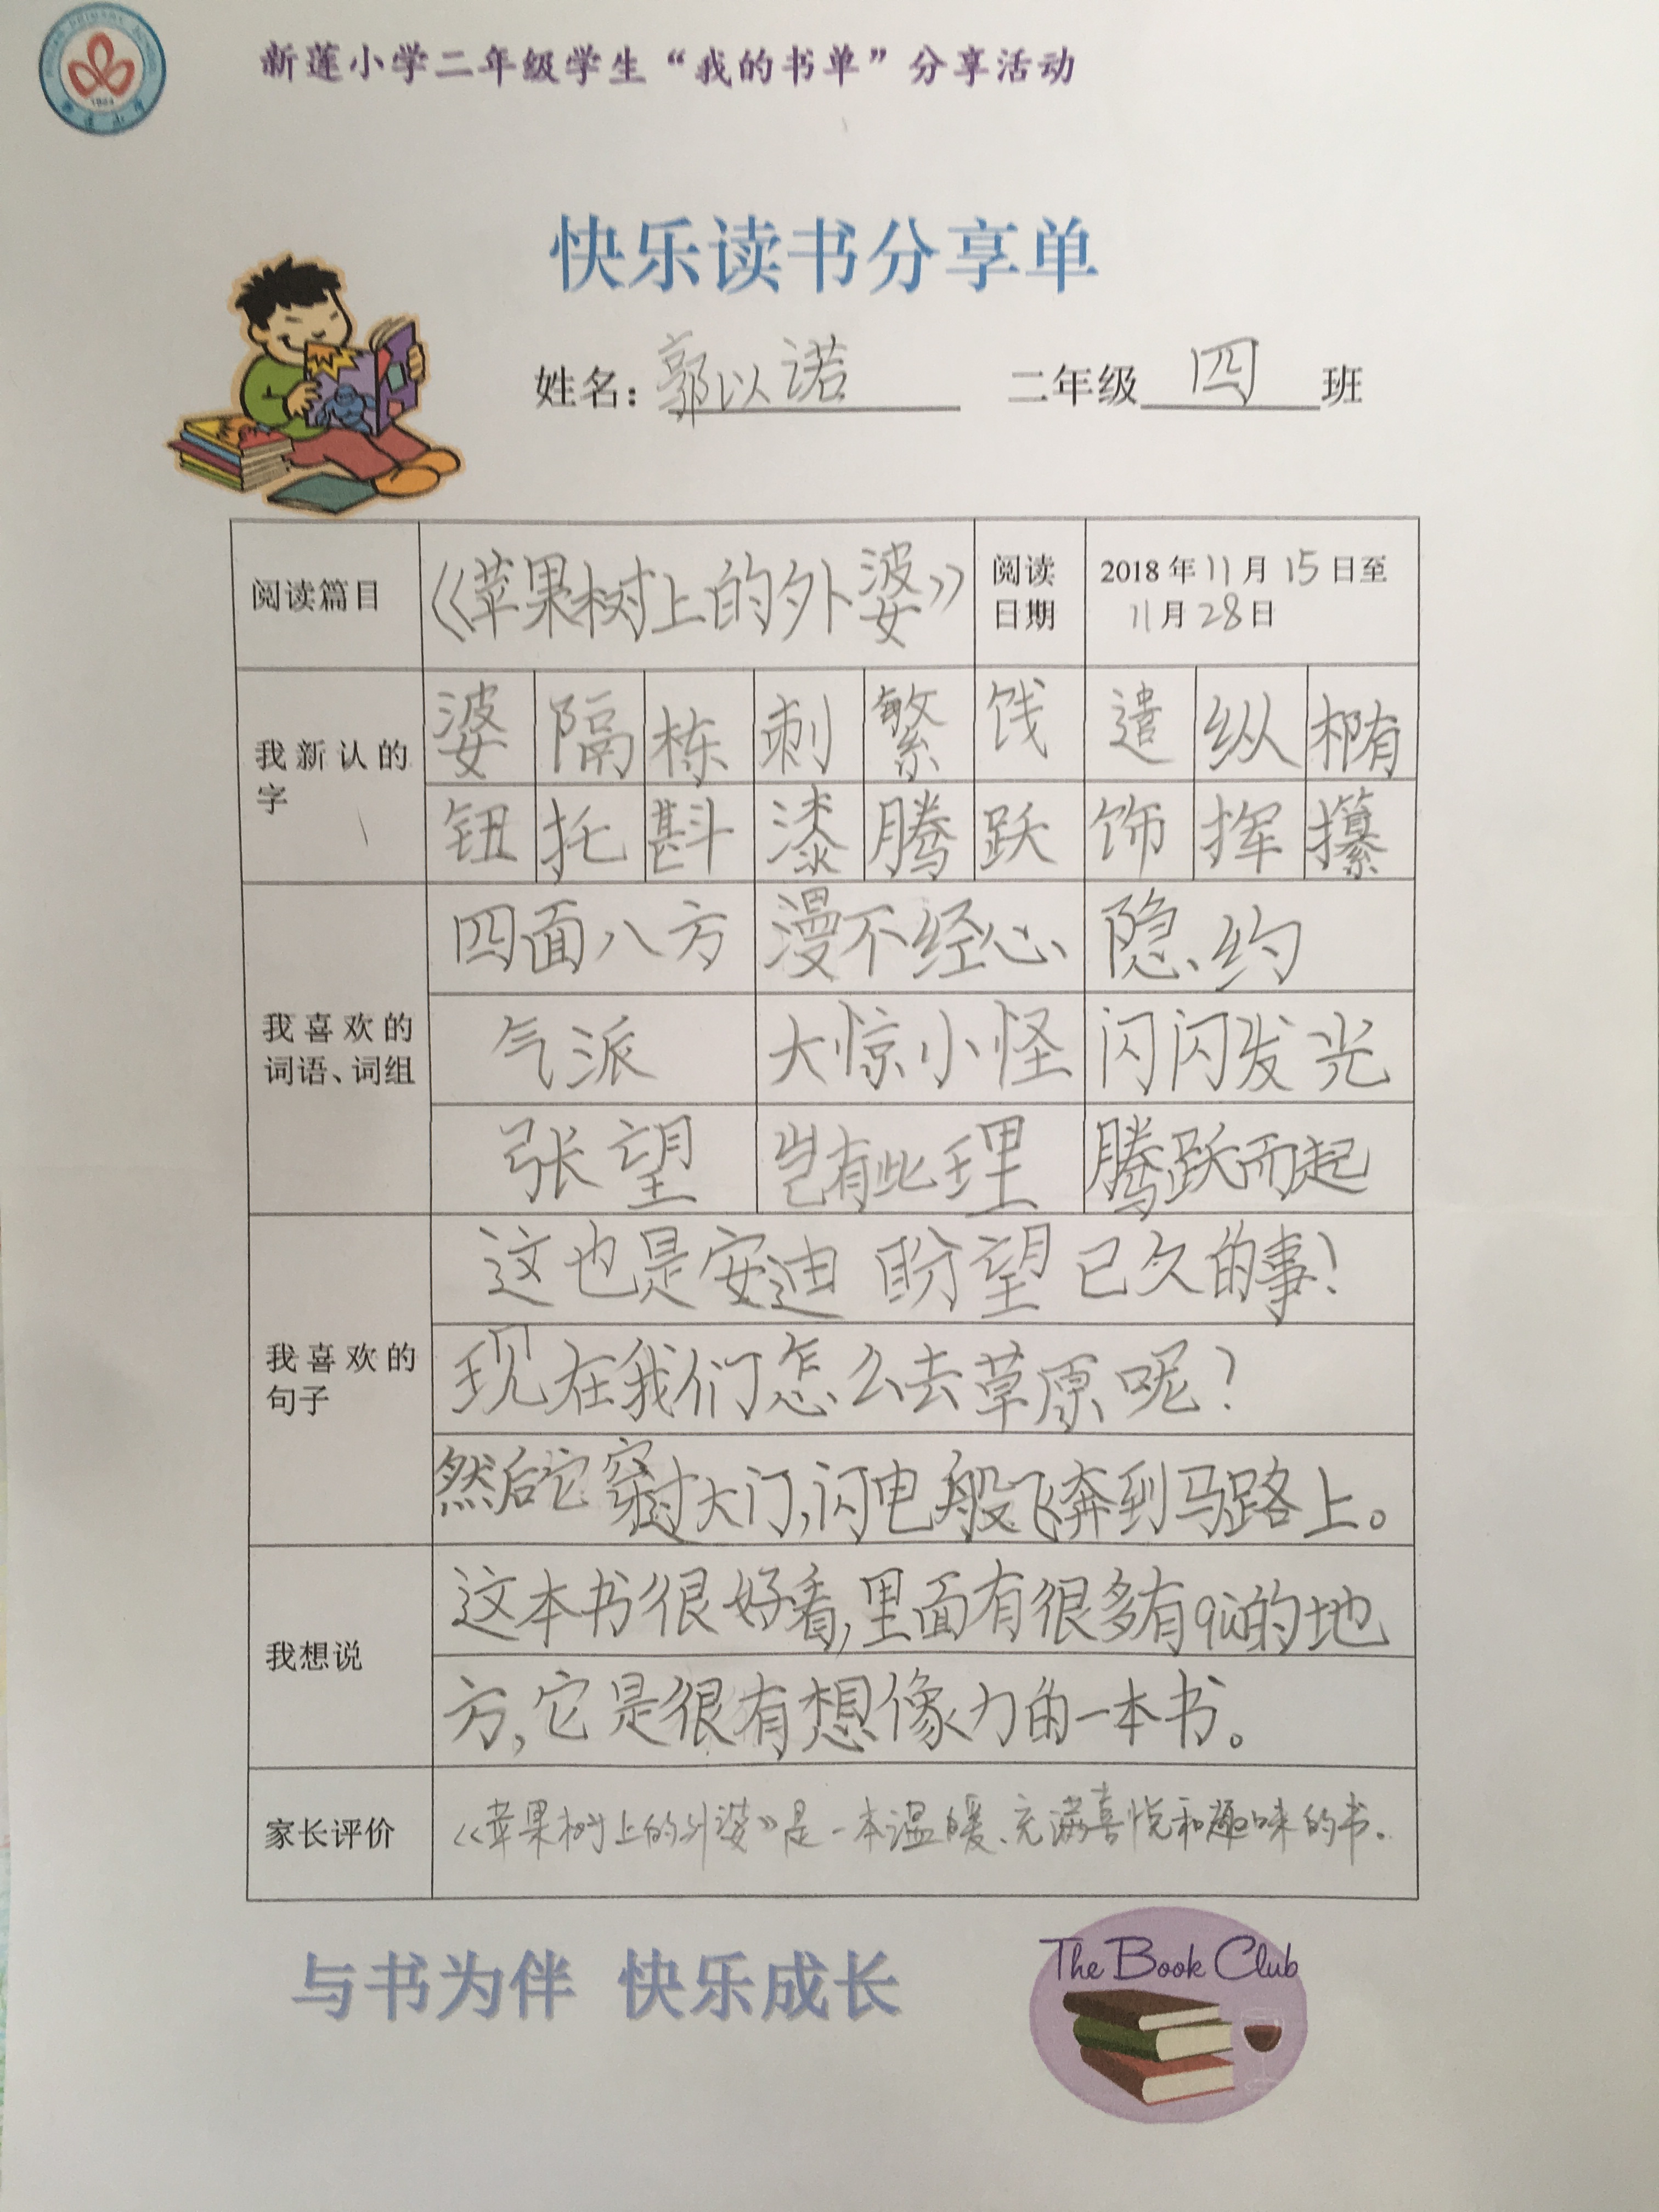 新莲小学二年级学生“我的书单”分享活动
1984
快乐读书分享单
姓名：郭以诺 二年级四班
阅读篇目 《苹果树上的外婆》 阅读日期 2018年11月15日至11月28日
我新认的字
婆 隔 栋 刺 繁 饯 遣 纵 椭
钮 托 斟 漆 腾 跃 饰 挥 攥
我喜欢的词语、词组
四面八方 漫不经心 隐约
气派 大惊小怪 闪闪发光
张望 岂有此理 腾跃而起
我喜欢的句子
这也是安迪盼望已久的事！
现在我们怎么去草原呢？
然后它穿过大门，闪电般飞奔到马路上。
我想说
这本书很好看，里面有很多有qù的地
方，它是很有想像力的一本书。
家长评价 《苹果树上的外婆》是一本温暖、充满喜悦和趣味的书。
与书为伴 快乐成长
The Book Club